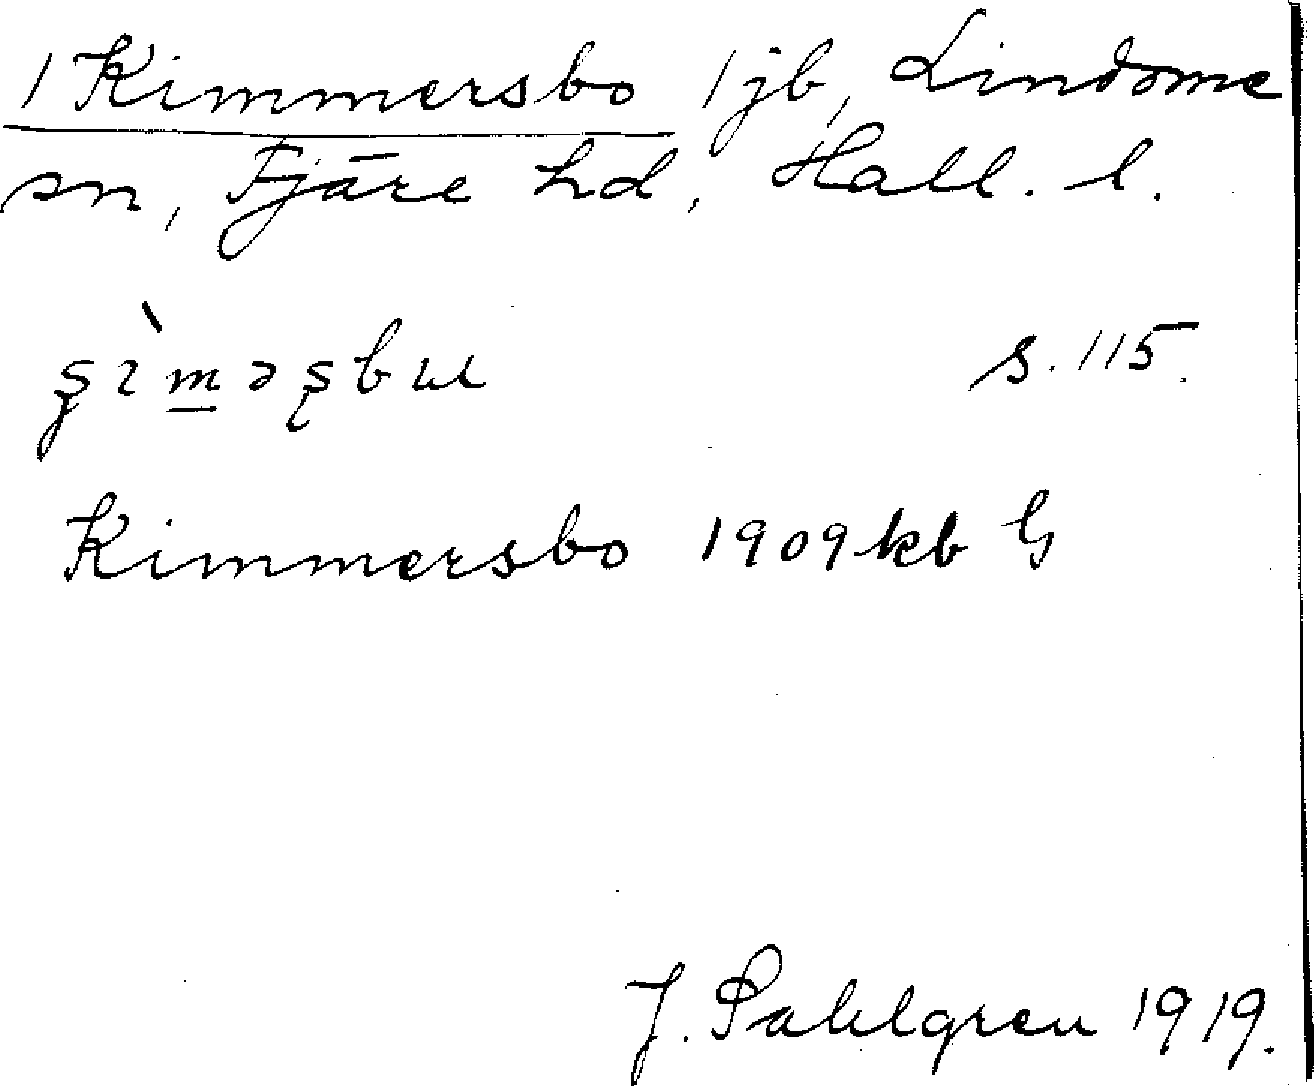 1 Kimmersbo 1 jb, Lindome
sn, Fjäre hd, Hall. l.
s. 115.
Kimmersbo 1909 kb G
J. Sahlgren 1919.